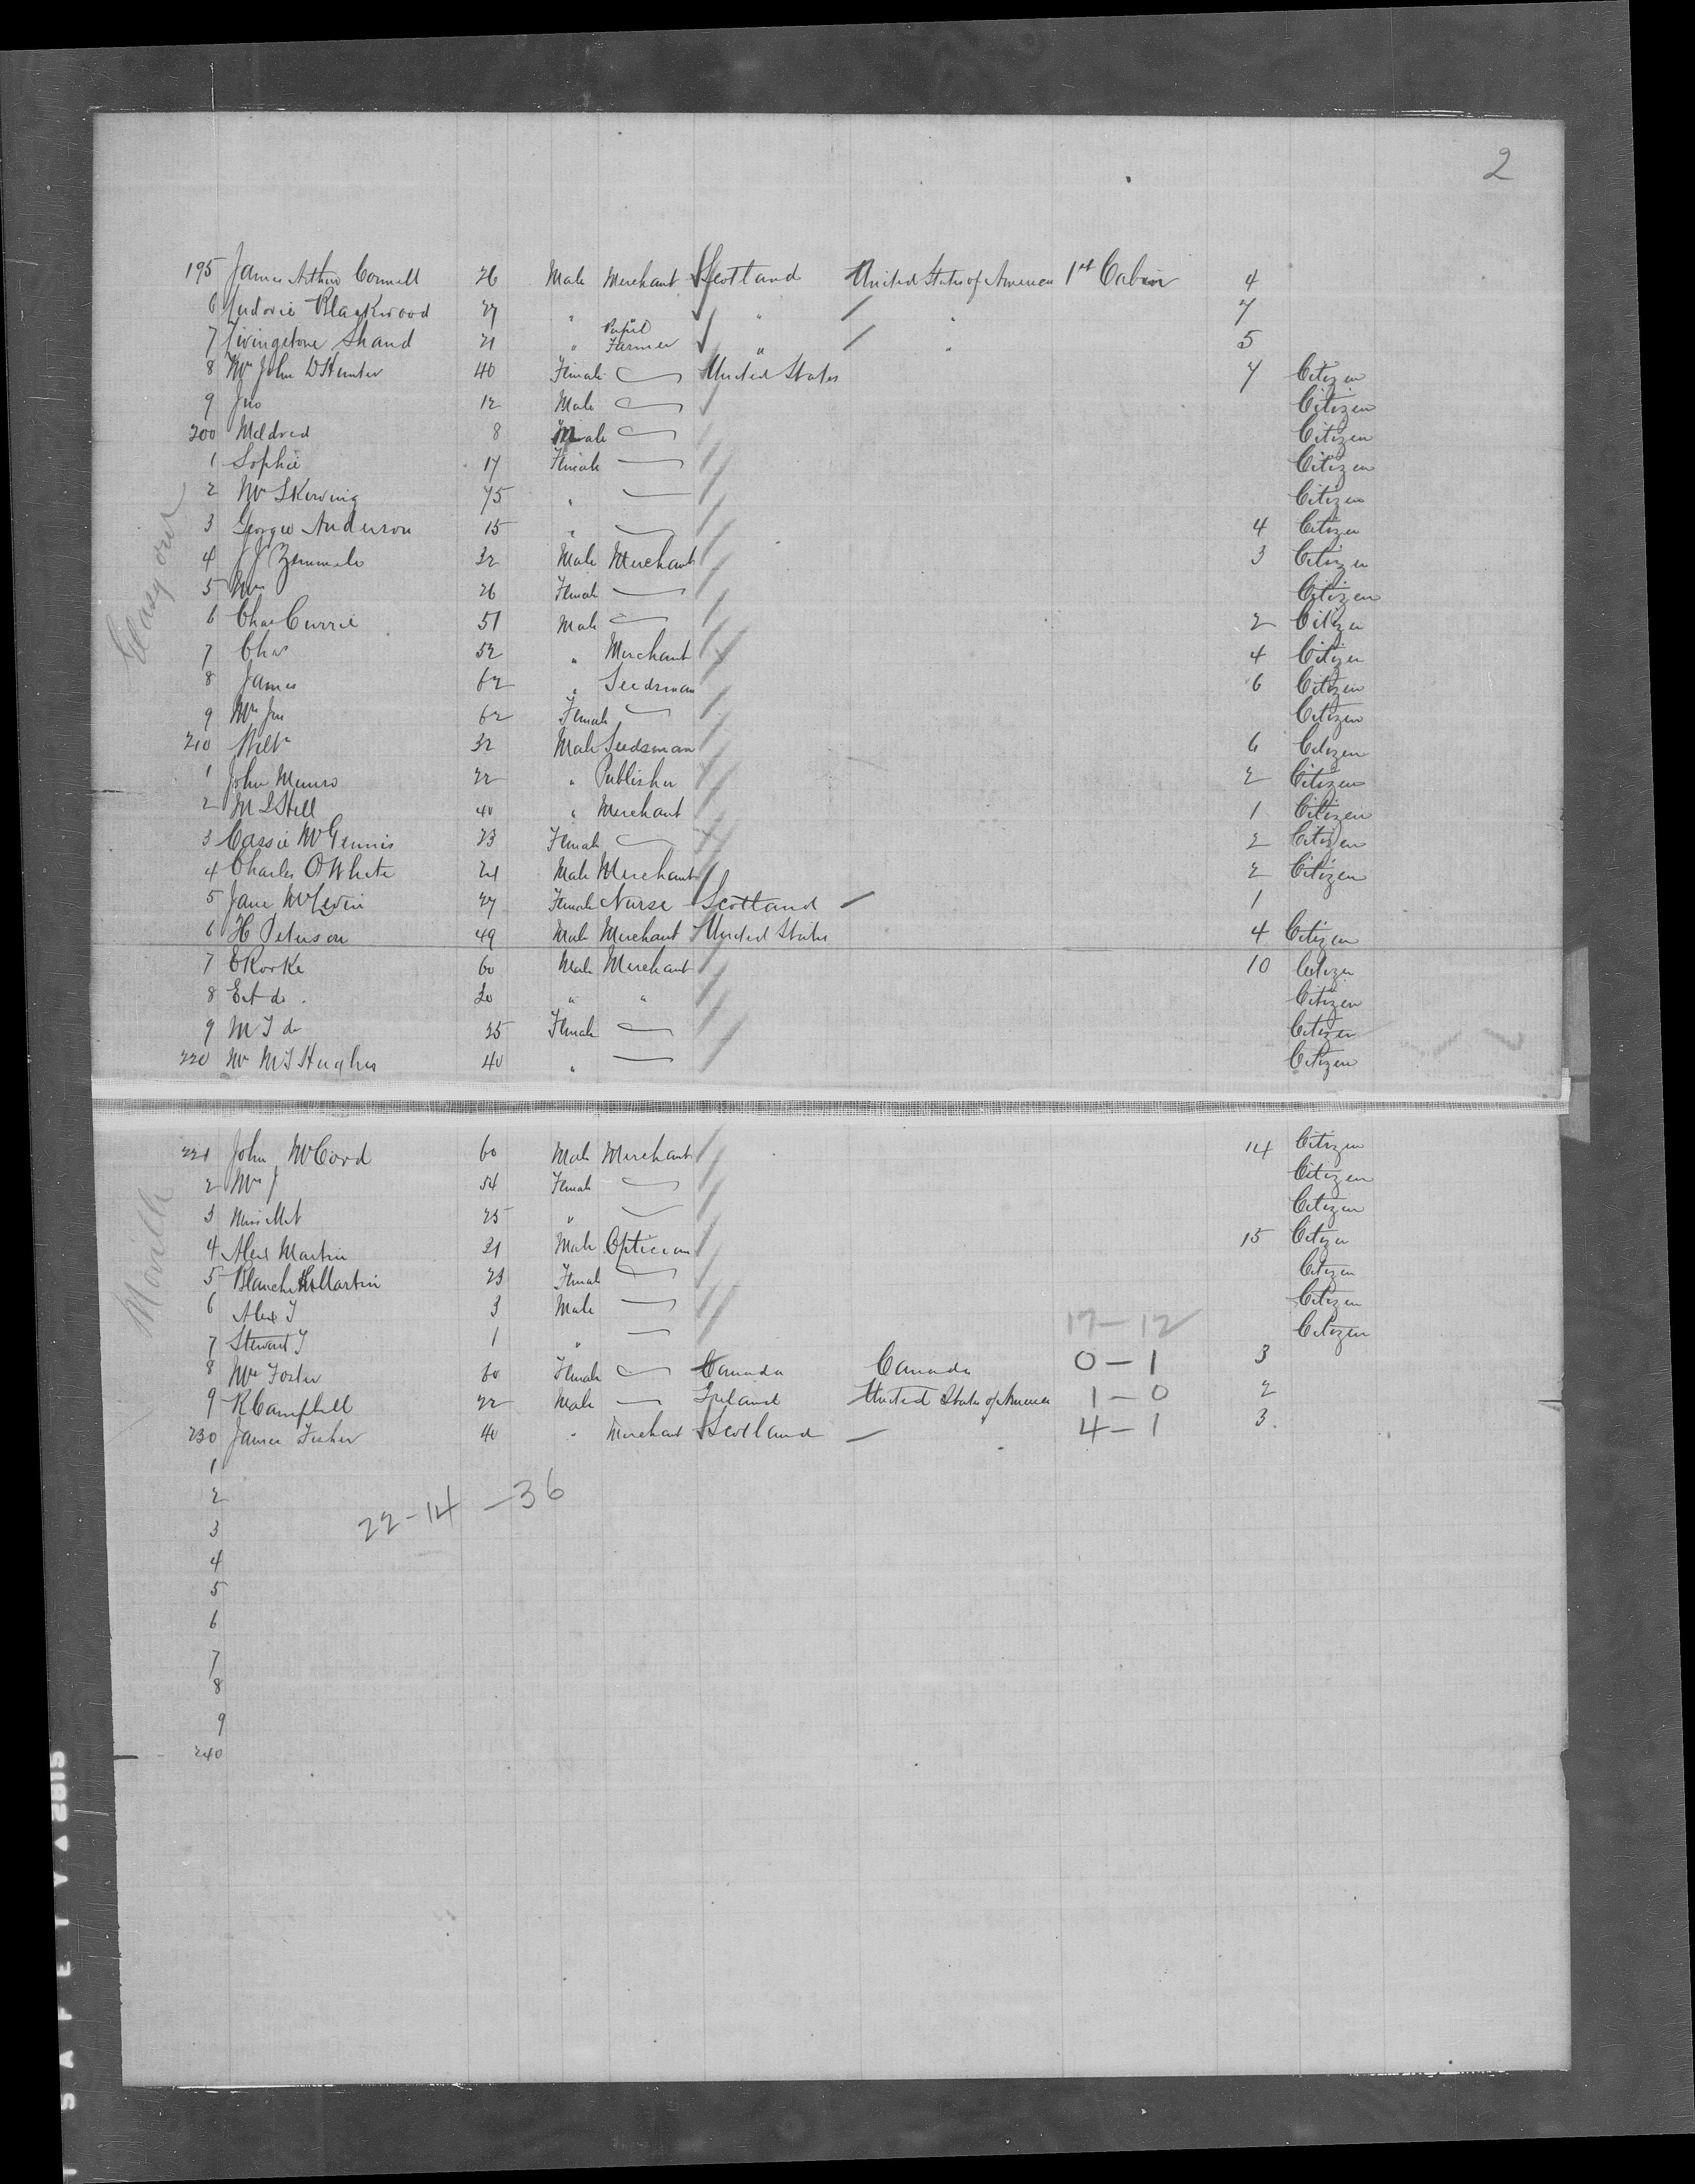 2
195 James Arthur Connell 26 Male Merchant Scotland United States of America 1st Cabin 4
6 Ludovic Blackwood 27 " " " 7
7 Livingstone Shand 21 " Pupil Farmer " " 5
8 Mrs John D Hunter 40 Female United States 7 Citizen
9 Jno 12 Male Citizen
200 Mildred 8 Male Citizen
1 Sophie 17 Female Citizen
2 Mrs Skerving 75 " Citizen
3 Georgie Anderson 15 " 4 Citizen
4 J J Zemmele 32 Male Merchant 3 Citizen
5 Mrs 26 Female Citizen
6 Chas Currie 51 Male 2 Citizen
7 Chas 52 " Merchant 4 Citizen
8 James 62 " Seedsman 6 Citizen
9 Mrs Jas 62 Female Citizen
210 Willm 32 Male Seedsman 6 Citizen
1 John Munro 22 " Publisher 2 Citizen
2 M S Still 40 " Merchant 1 Citizen
3 Cassie McGennis 23 Female 2 Citizen
4 Charles O White 24 Male Merchant 2 Citizen
5 Jane 27 Female Nurse Scotland 1
6 H Peterson 49 Male Merchant United States 4 Citizen
7 E Rorke 60 Male Merchant 10 Citizen
8 E A do. 20 " " Citizen
9 M J do 25 Female Citizen
220 Mrs M J Hughes 40 " Citizen
Glasgow
221 John McCord 60 Male Merchant 14 Citizen
2 Mrs J 54 Female Citizen
3 Miss 25 " Citizen
4 Alex Martin 31 Male Optician 15 Citizen
5 Blanche Martin 23 Female Citizen
6 Alex J 3 Male Citizen
7 Stewart J 1 " 17-12 Citizen
8 Mrs Foster 60 Female Canada Canada 0-1 3
9 R Campbell 22 Male Ireland United States of America 1-0 2
230 James Fisher 40 " Merchant Scotland " 4-1 3.
Moville
1
2
22-14-36
3
4
5
6
7
8
9
240
SAFETY